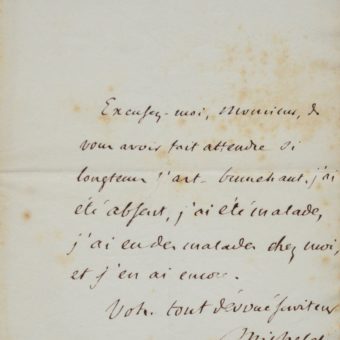 Excusez-moi, Monsieur, de
vous avoir fait attendre si
longtems j'ai
été absent, j'ai été malade,
j'ai eu des malades chez moi,
et j'en ai encore.
Votr. tout dévoué serviteur